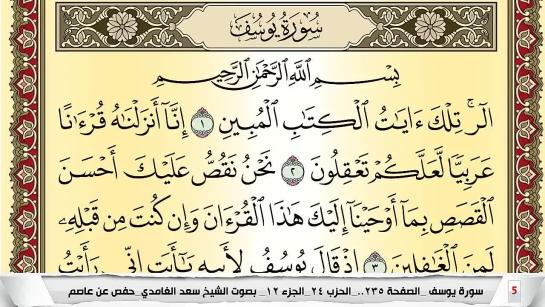 سُورَةُ يُوسُفَ
بِسْمِ اللَّهِ الرَّحْمَٰنِ الرَّحِيمِ
الٓر ۚ تِلْكَ ءَايَٰتُ ٱلْكِتَٰبِ ٱلْمُبِينِ ١ إِنَّآ أَنزَلْنَٰهُ قُرْءَٰنًا
عَرَبِيًّا لَّعَلَّكُمْ تَعْقِلُونَ ٢ نَحْنُ نَقُصُّ عَلَيْكَ أَحْسَنَ
ٱلْقَصَصِ بِمَآ أَوْحَيْنَآ إِلَيْكَ هَٰذَا ٱلْقُرْءَانَ وَإِن كُنتَ مِن قَبْلِهِۦ
لَمِنَ ٱلْغَٰفِلِينَ ٣ إِذْ قَالَ يُوسُفُ لِأَبِيهِ يَٰٓأَبَتِ إِنِّى رَأَيْتُ
سورة يوسف _الصفحة ٢٣٥.._الحزب ٢٤_الجزء ١٢_ بصوت الشيخ سعد الغامدي_حفص عن عاصم 5